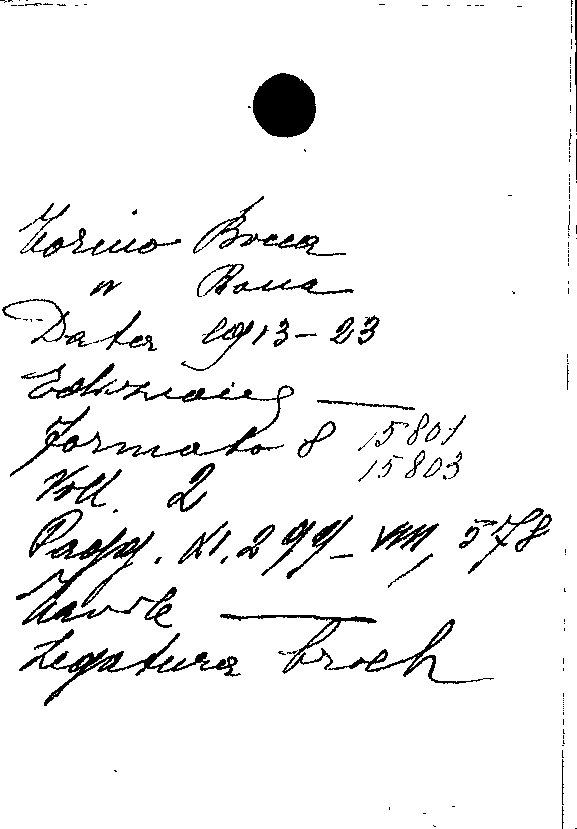 Torino Bocca
" Bona
Data 1913-23
Edizione ___
Formato 8 15801
15803
Voll. 2
Pagg. XI, 299 - VIII, 578
Tavole ___
Legatura broch